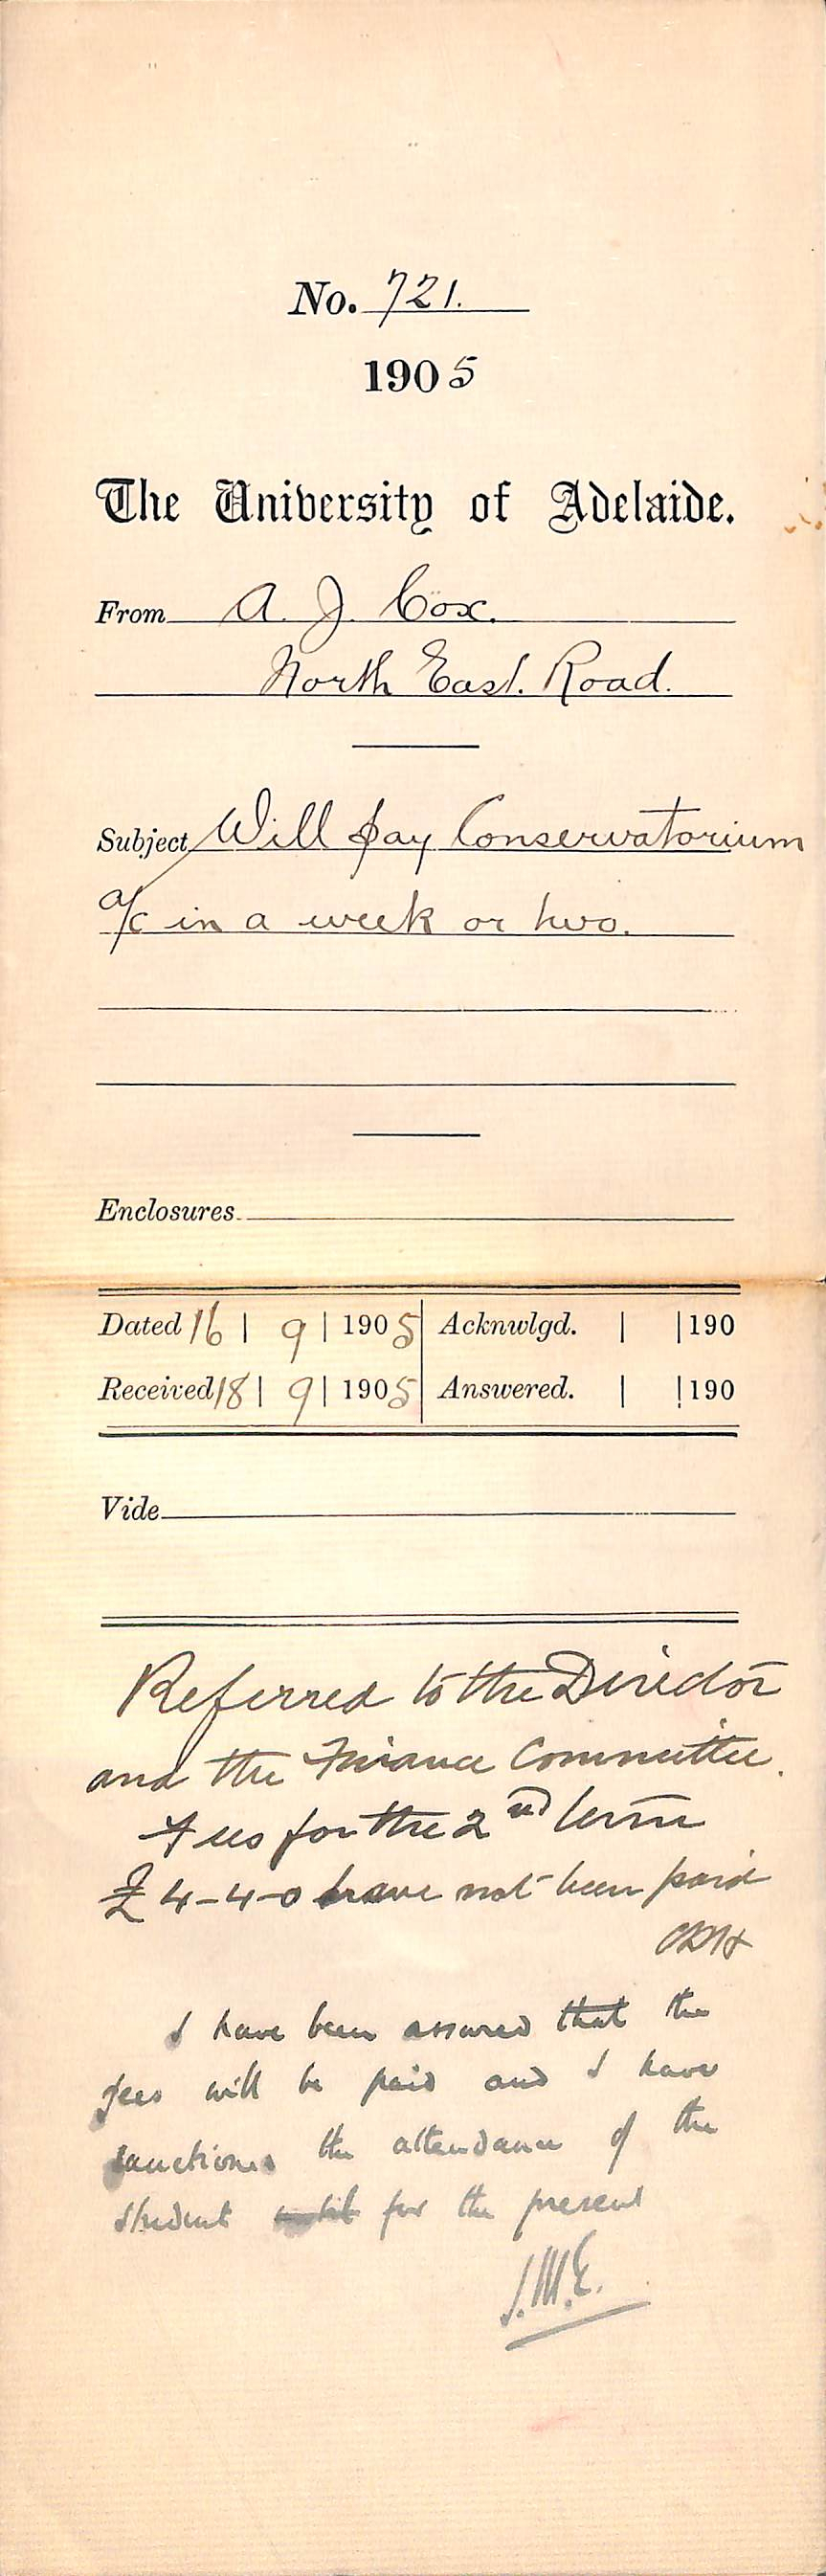 No. 721.
1905
The University of Adelaide.
From A. J. Cox.
North East. Road.
Subject Will pay Conservatorium
a/c in a week or two.
Enclosures
Dated 16 | 9 | 1905 Acknwlgd. | |190
Received 18 | 9 | 1905 Answered. | |190
Vide
Referred to the Director
and the Finance Committee.
Fees for the 2nd term
£4-4-0 have not been paid
I have been assured that the
fees will be paid and I have
sanctioned the attendance of the
student until for the present
J.M.E.